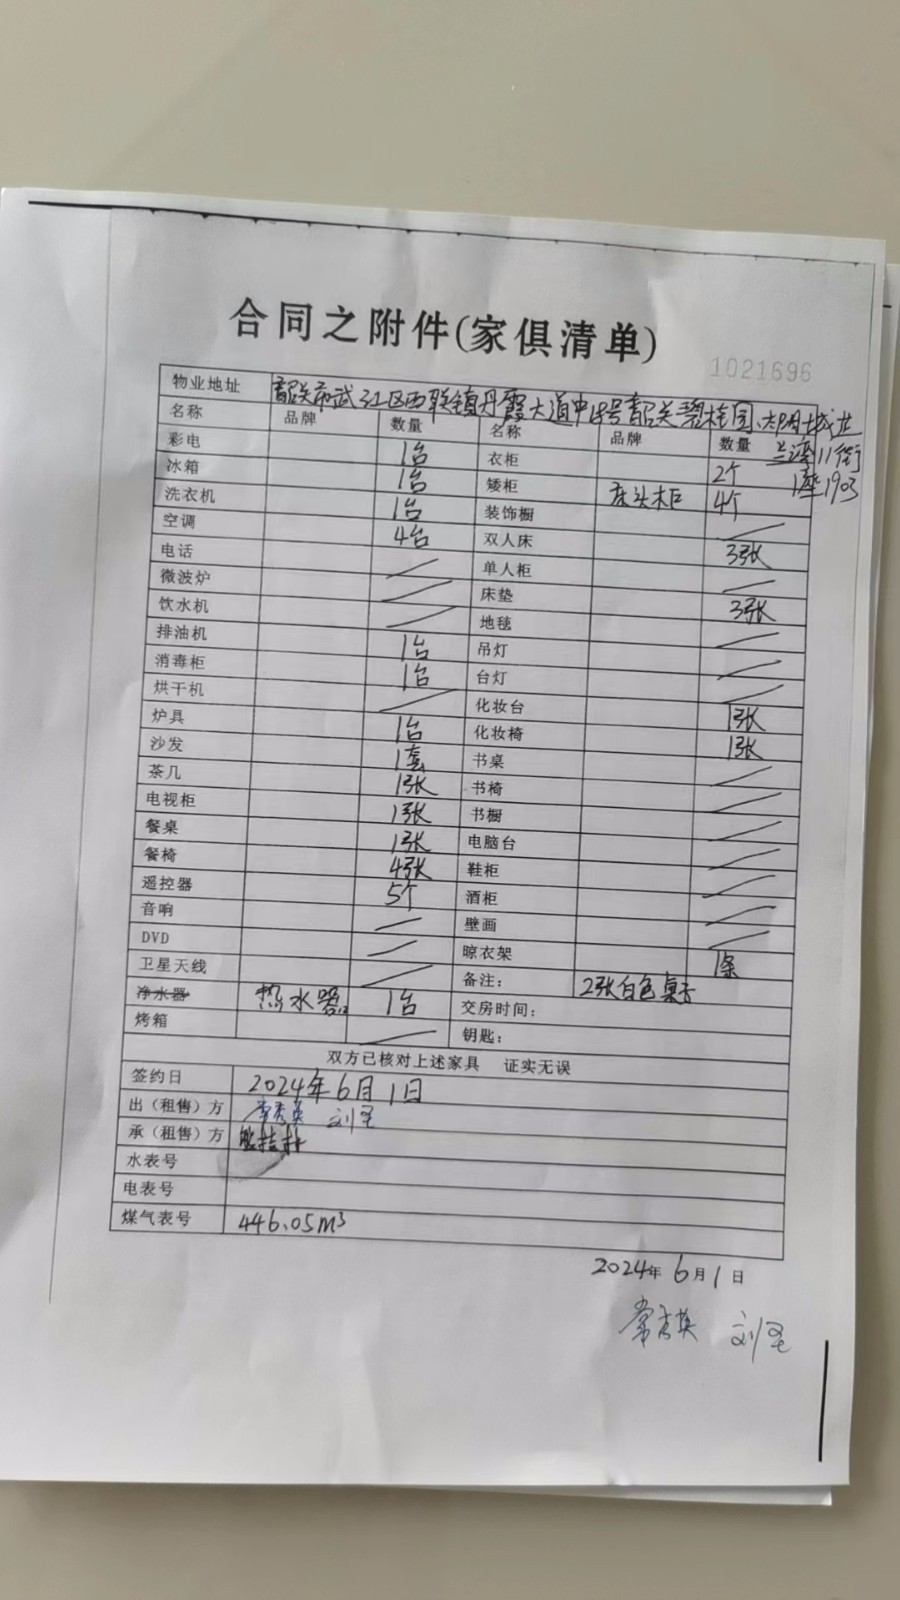 合同之附件(家俱清单)
1021696
物业地址 韶关市武江区西联镇丹霞大道中18号韶关碧桂园、太阳城
兰湾11街
1座1903
名称 品牌 数量 名称 品牌 数量
彩电 1台 衣柜 2个
冰箱 1台 矮柜 床头柜 4个
洗衣机 1台 装饰橱 /
空调 4台 双人床 3张
电话 / 单人柜 /
微波炉 / 床垫 3张
饮水机 / 地毯 /
排油机 1台 吊灯 /
消毒柜 1台 台灯 /
烘干机 / 化妆台 1张
炉具 1台 化妆椅 1张
沙发 1套 书桌 /
茶几 1张 书椅 /
电视柜 1张 书橱 /
餐桌 1张 电脑台 /
餐椅 4张 鞋柜 /
遥控器 5个 酒柜 /
音响 / 壁画 /
DVD / 晾衣架 1条
卫星天线 / 备注: 2张白色桌子
净水器 热水器 1台 交房时间:
烤箱 / 钥匙:
双方已核对上述家具 证实无误
签约日 2024年6月1日
出(租售)方 常秀英 刘圣
承(租售)方
水表号
电表号
煤气表号 446.05m³
2024年6月1日
常秀英 刘圣